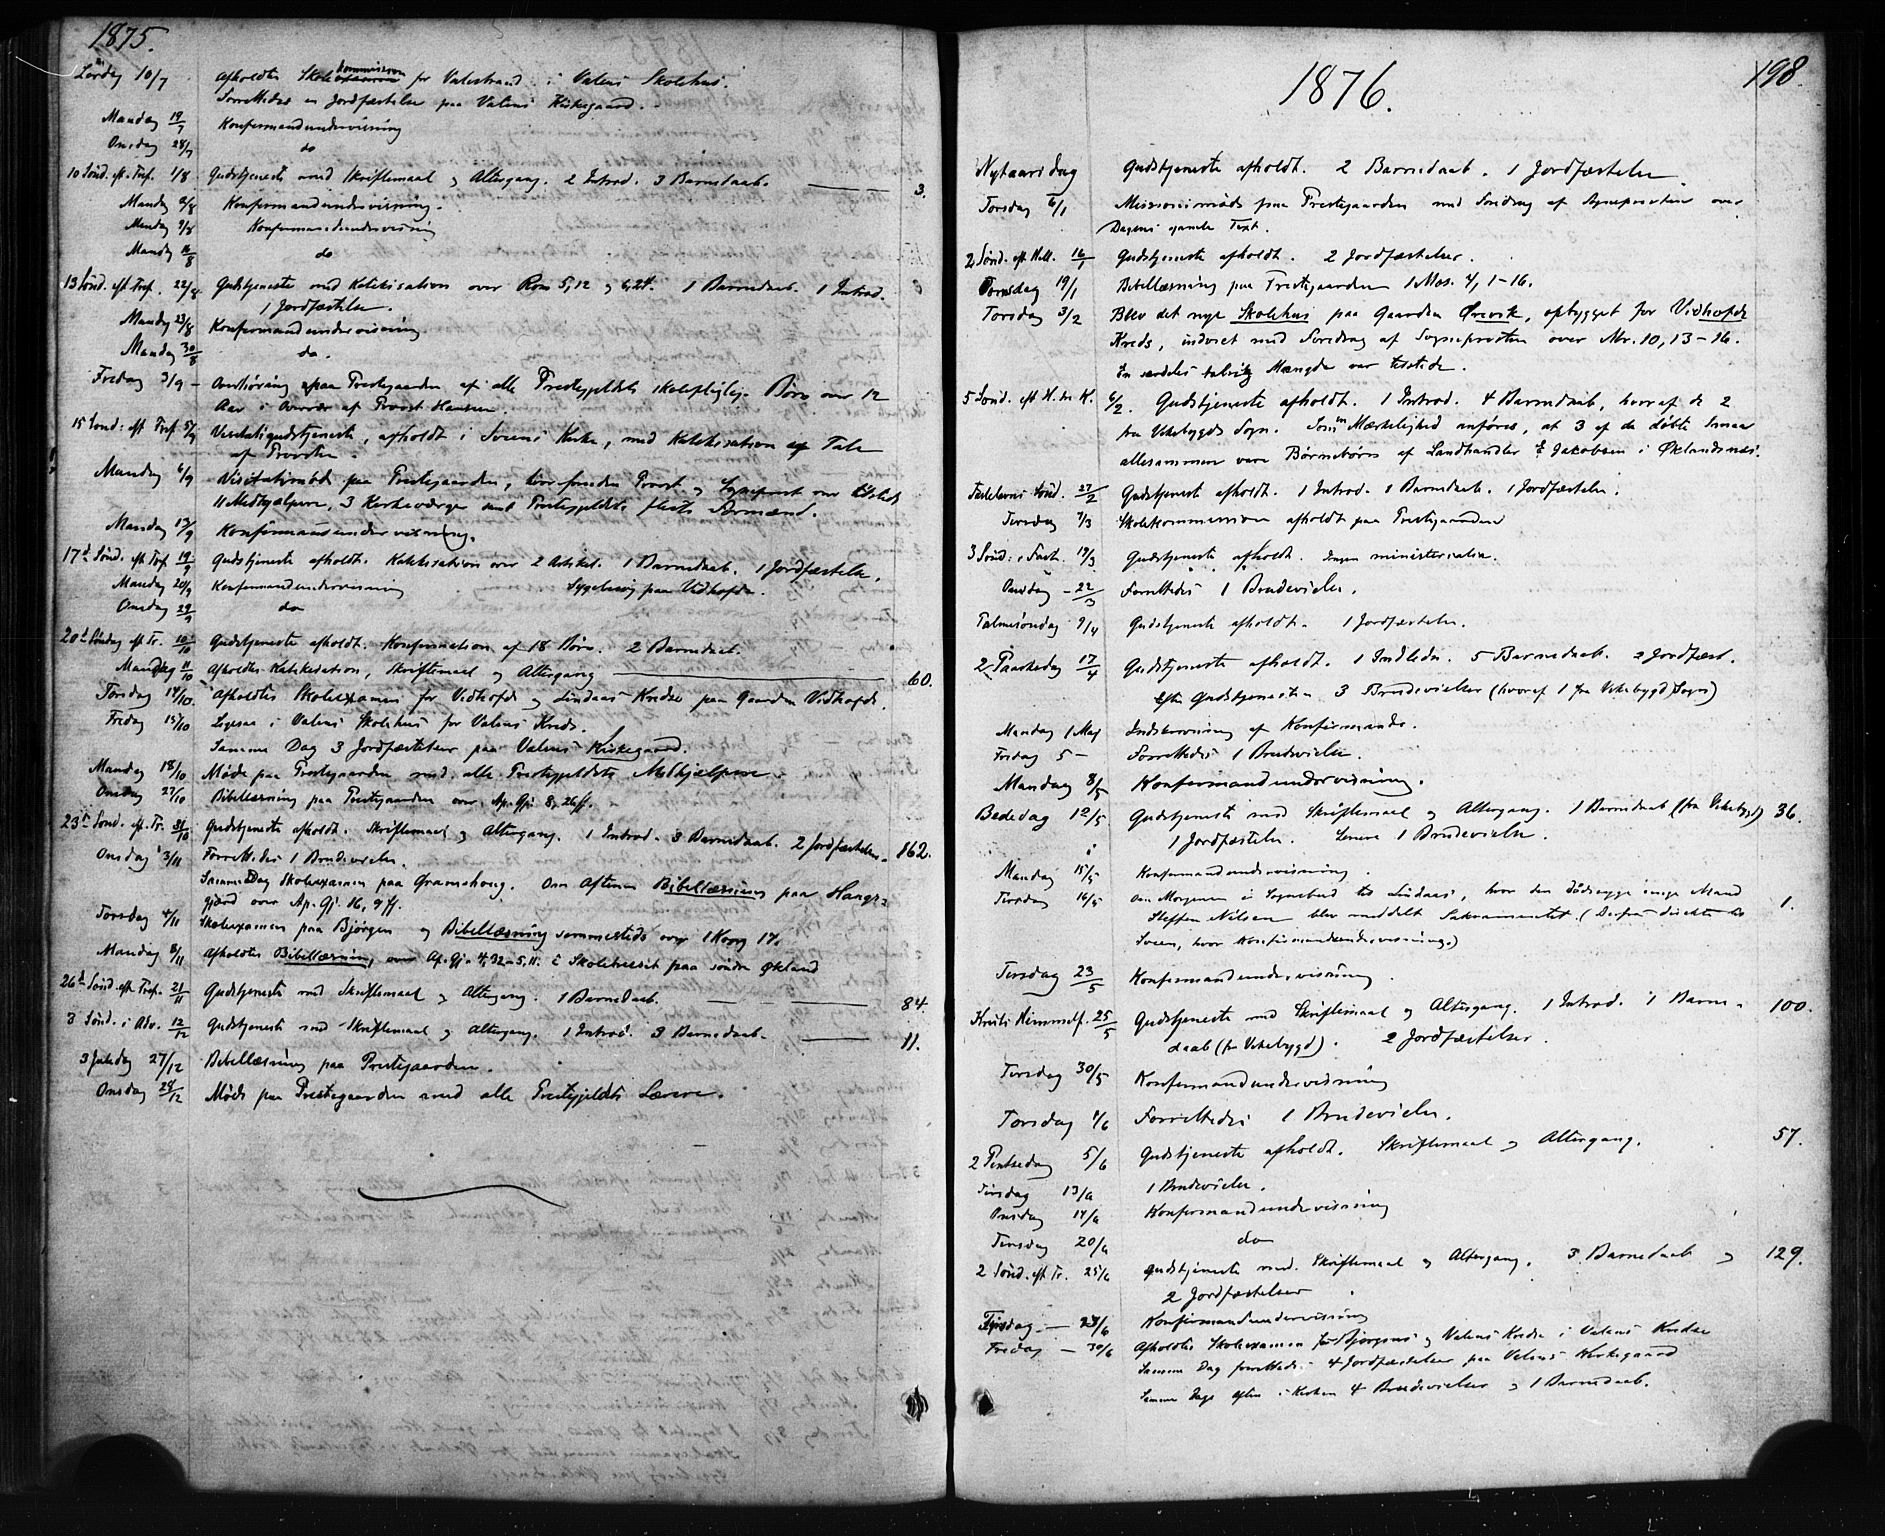 1875.
Lørdag 10/7 Afholdtes Skolekommission for Valestrand i Valens Skolehus.
Forrettedes en Jordfæstelse paa Valens Kirkegaard.
Mandag 19/7 Konfirmandundervisning
Onsdag 28/7 do
10 Sønd. eft. Tref. 1/8 Gudstjeneste med Skriftemaal og Altergang. 2 Introd. 3 Barnedaab. 3.
Mandag 2/8 Konfirmandundervisning.
Mandag 9/8 Konfirmandundervisning
Mandag 16/8 do
13 Sønd. eft Tref. 22/8 Gudstjeneste med Katekisation over Rom 5,12 og 6,24. 1 Barnedaab. 1 Introd.
1 Jordfæstelse.
Mandag 23/8 Konfirmandundervisning.
Mandag 30/8 do.
Fredag 3/9 - Overhøring paa Prestegaarden af alle Prestegjeldets skolepligtige Børn over 12
Aar i Overvær af Provst Hansen.
15 Sønd. eft Tref 5/9 Visitatsgudstjeneste, afholdt i Sveens Kirke, med Katekisation og Tale
af Provsten.
Mandag 6/9 Visitatsmøde paa Prestegaarden, hvor foruden Provst og Sogneprest var tilstede
11 Medhjælpere, 3 Kirkeværger samt Prestegjeldets fleste Formænd.
Mandag 13/9 Konfirmandundervisning.
17de Sønd. eft Tref 19/9 Gudstjeneste afholdt. Katekisation over 2 Artikel. 1 Barnedaab. 1 Jordfæstelse.
Mandag 20/9 Konfirmandundervisning Sygebesøg paa Vidhofde.
Onsdag 29/9 do
20de Søndag eft Tr. 10/10 Gudstjeneste afholdt. Konfirmation af 18 Børn. 2 Barnedaab.
Mandag 11/10 Afholdtes Katekisation, Skriftemaal og Altergang 60.
Torsdag 14/10. Afholdtes Skoleexamen for Vidhofde og Lindaas Kredse paa Gaarden Vidhofde.
Fredag 15/10 Ligesaa i Valens Skolehus for Valens Kreds.
Samme Dag 3 Jordfæstelser paa Valens Kirkegaard.
Mandag 18/10 Møde paa Prestegaarden med alle Prestegjeldets Medhjælpere.
Onsdag 27/10 Bibellæsning paa Prestegaarden over Ap. Gj. 8, 26 ff.
23de Sønd. eft. Tr. 31/10 Gudstjeneste afholdt. Skriftemaal og Altergang. 1 Introd. 3 Barnedaab. 2 Jordfæstelser. 62.
Onsdag 3/11 Forrettedes 1 Brudevielse.
Samme Dag Skoleexamen paa Gramshoug. Om Aftenen Bibellæsning paa Hauge-
gjærd over Ap. Gj. 16, 9 ff.
Torsdag 4/11 Skoleexamen paa Bjørgen og Bibellæsning sammesteds over 1 Kong 17.
Mandag 8/11 Afholdtes Bibellæsning over Ap. Gj. 4,32 - 5,11. i Skolekredsit paa søndre Økland
26de Sønd. eft Tref. 21/11 Gudstjeneste med Skriftemaal og Altergang. 1 Barnedaab. 84.
3 Sønd. i Adv. 12/12 Gudstjeneste med Skriftemaal og Altergang. 1 Introd. 3 Barnedaab. 11.
3 Juledag 27/12 Bibellæsning paa Prestegaarden.
Onsdag 29/12 Møde paa Prestegaarden med alle Prestegjeldets Lærere.
198
1876.
Nytaarsdag Gudstjeneste afholdt. 2 Barnedaab. 1 Jordfæstelse.
Torsdag 6/1 Missionsmøde paa Prestegaarden med Foredrag af Sognepresten over
Dagens gamle Text.
2 Sønd. eft Hell. 16/1 Gudstjeneste afholdt. 2 Jordfæstelser.
Onsdag 19/1 Bibellæsning paa Prestegaarden 1 Mos. 4, 1-16.
Torsdag 3/2 Blev det nye Skolehus paa Gaarden Ørevik, opbygget for Vidhofde
Kreds, indviet med Foredrag af Sognepresten over Mr. 10, 13-16.
En særdeles talrig Mængde var tilstede.
5 Sønd. eft H. 3 K. 6/2. Gudstjeneste afholdt. 1 Introd. 4 Barnedaab, hvoraf de 2
fra Vikebygds Sogn. Som en Mærkelighed anføres, at 3 af de døbte Smaa
allesammen vare Børnebørn af Landhandler E Jakobsen i Øklandsnæs.
Fastelavns Sønd. 27/2 Gudstjeneste afholdt. 1 Introd. 1 Barnedaab. 1 Jordfæstelse.
Tirsdag 7/3 Skolekommission afholdt paa Prestegaarden
3 Sønd. i Fast. 19/3 Gudstjeneste afholdt. Ingen ministerialia.
Onsdag - 22/3 Forrettedes 1 Brudevielse.
Palmesøndag 9/4 Gudstjeneste afholdt. 1 Jordfæstelse.
2 Paaskedag 17/4 Gudstjeneste afholdt. 1 Indledn. 5 Barnedaab. 2 Jordfæst.
Efter Gudstjenesten 3 Brudevielser (hvoraf 1 fra Vikebygd Sogn)
Mandag 1 Maj Indskrivning af Konfirmander.
Fredag 5 - Forrettedes 1 Brudevielse.
Mandag 8/5 Konfirmandundervisning.
Bededag 12/5 Gudstjeneste med Skriftemaal og Altergang. 1 Barnedaab (fra Vikebygd) 36.
1 Jordfæstelse. Senere 1 Brudevielse.
Mandag 15/5 Konfirmandundervisning.
Tirsdag 16/5 Om Morgenen i Sognebud til Lindaas, hvor den dødssyge unge Mand
Steffen Nilsen blev meddelt Sakramentet. (Derfra direkte til 1.
Sveen, hvor Konfirmandundervisning.)
Tirsdag 23/5 Konfirmandundervisning.
Kristi Himmelf. 25/5 Gudstjeneste med Skriftemaal og Altergang. 1 Introd. 1 Barne- 100.
daab (fra Vikebygd). 2 Jordfæstelser.
Tirsdag 30/5 Konfirmandundervisning
Torsdag 1/6 Forrettedes 1 Brudevielse.
2 Pintsedag 5/6 Gudstjeneste afholdt. Skriftemaal og Altergang. 57.
1 Brudevielse.
Tirsdag 13/6 Konfirmandundervisning
Onsdag 14/6
Tirsdag 20/6 do
2 Sønd. eft Tr. 25/6 Gudstjeneste med Skriftemaal og Altergang. 3 Barnedaab og 129.
2 Jordfæstelser
Tirsdag - 27/6 Konfirmandundervisning
Fredag - 30/6 Afholdtes Skoleexamen for Bjørgens og Valens Kredse i Valens Kredse
Samme Dag forrettedes 4 Jordfæstelser paa Valens Kirkegaard
Samme Dags Aften i Kirken 4 Brudevielser og 1 Barnedaab.